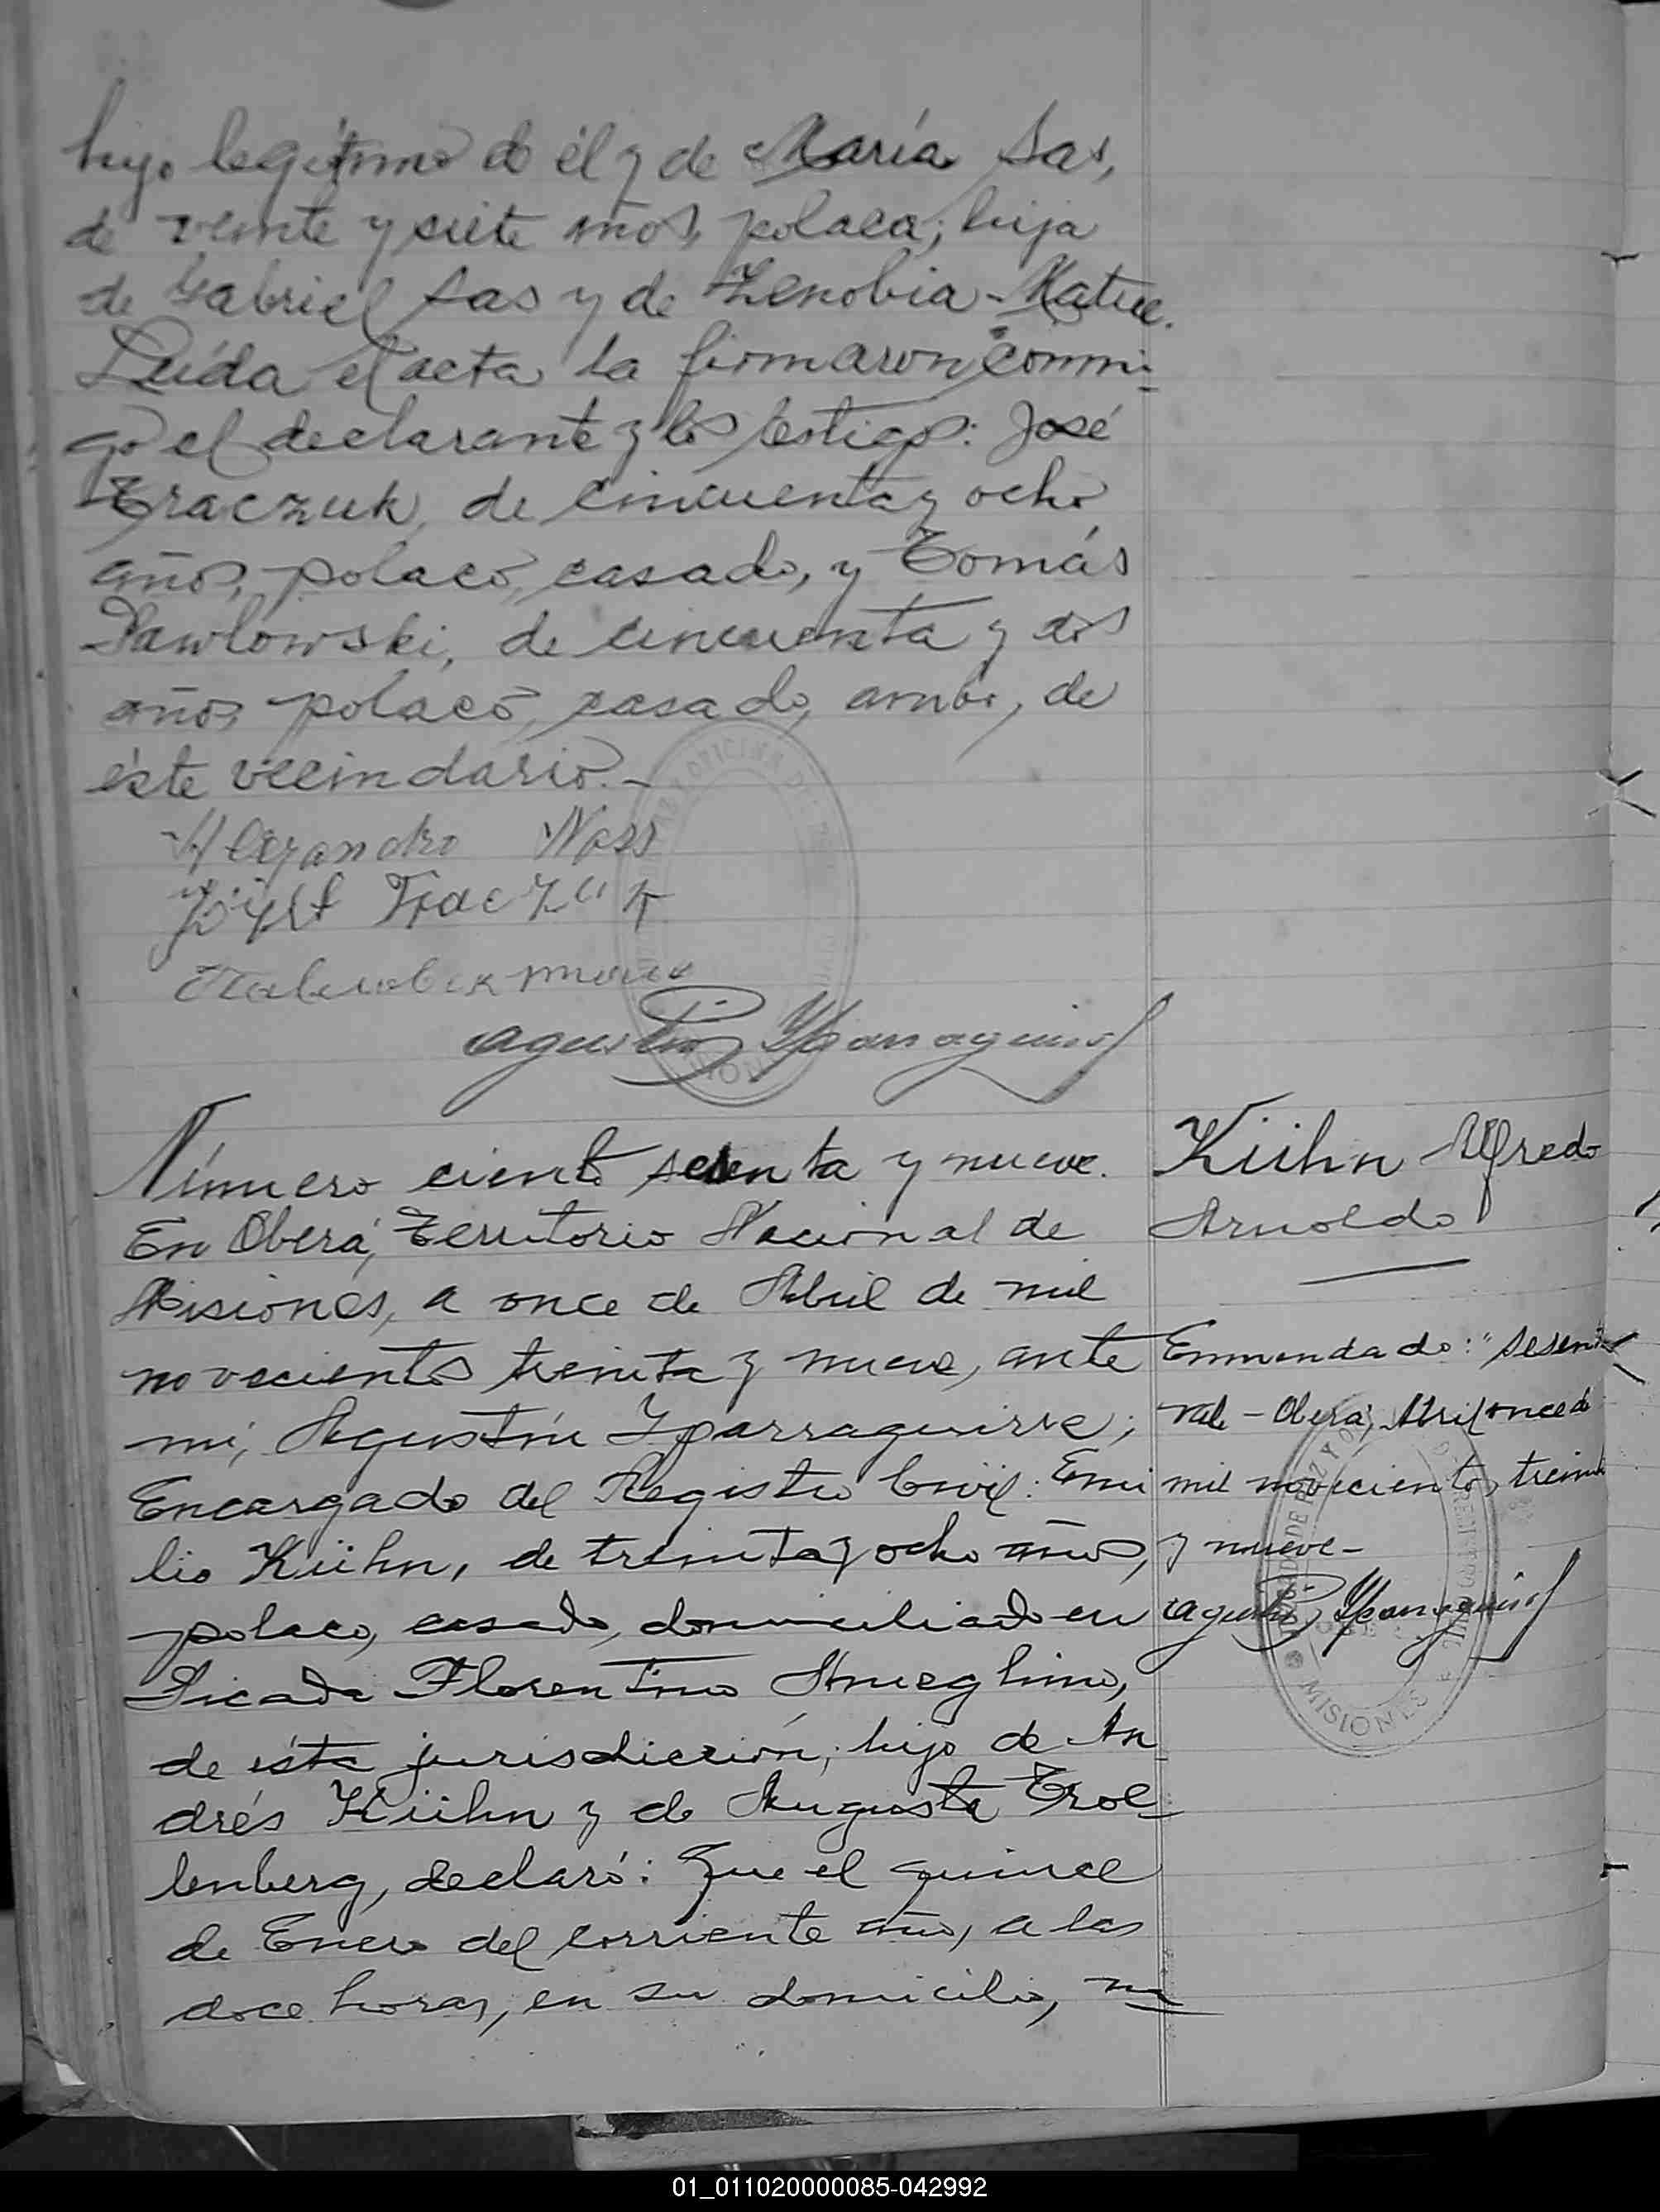 hijo legítimo de él y de María Sas,
de veinte y siete años, polaca; hija
de Gabriel Sas y de Zenobia
Leída el acta la firmaron conmi-
go el declarante y los testigos: José
Traczuk, de cincuenta y ocho
años, polaco, casado, y Tomás
Pawlowski, de cincuenta y dos
años, polaco, casado, ambos, de
éste vecindario.-
Alejandro Wass
Traczuk
Número ciento sesenta y nueve.
En Oberá, Territorio Nacional de
Misiones, a once de Abril de mil
novecientos treinta y nueve, ante
mí, Agustín Yparraguirre;
Encargado del Registro Civil: Emi
lio Kühn, de treinta y ocho años,
polaco, casado, domiciliado en
Picada Florentino Ameghino,
de ésta jurisdicción; hijo de An
drés Kühn y de Augusta Trol-
lenberg, declaró: Que el quince
de Enero del corriente año, a las
doce horas, en su domicilio, na
Kühn Alfredo
Arnoldo
Enmendado: "sesenta
vale - Oberá, Abril once de
mil novecientos treinta
y nueve-
MISIONES